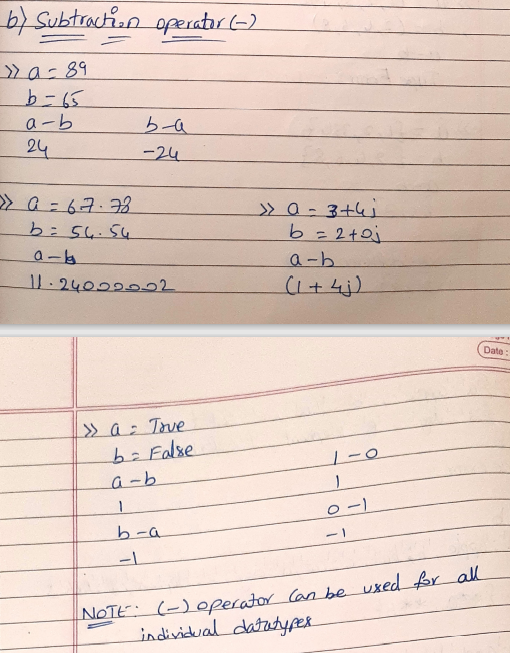 b) Subtraction operator (-)
>> a = 89
b = 65
a-b b-a
24 -24
>> a = 67.78
b = 54.54
a-b
11.24000002
>> a = 3+4j
b = 2+0j
a-b
(1+4j)
Date:
>> a = True
b = False
a-b
1
b-a
-1
1-0
1
0-1
-1
NOTE: (-) operator can be used for all
individual datatypes